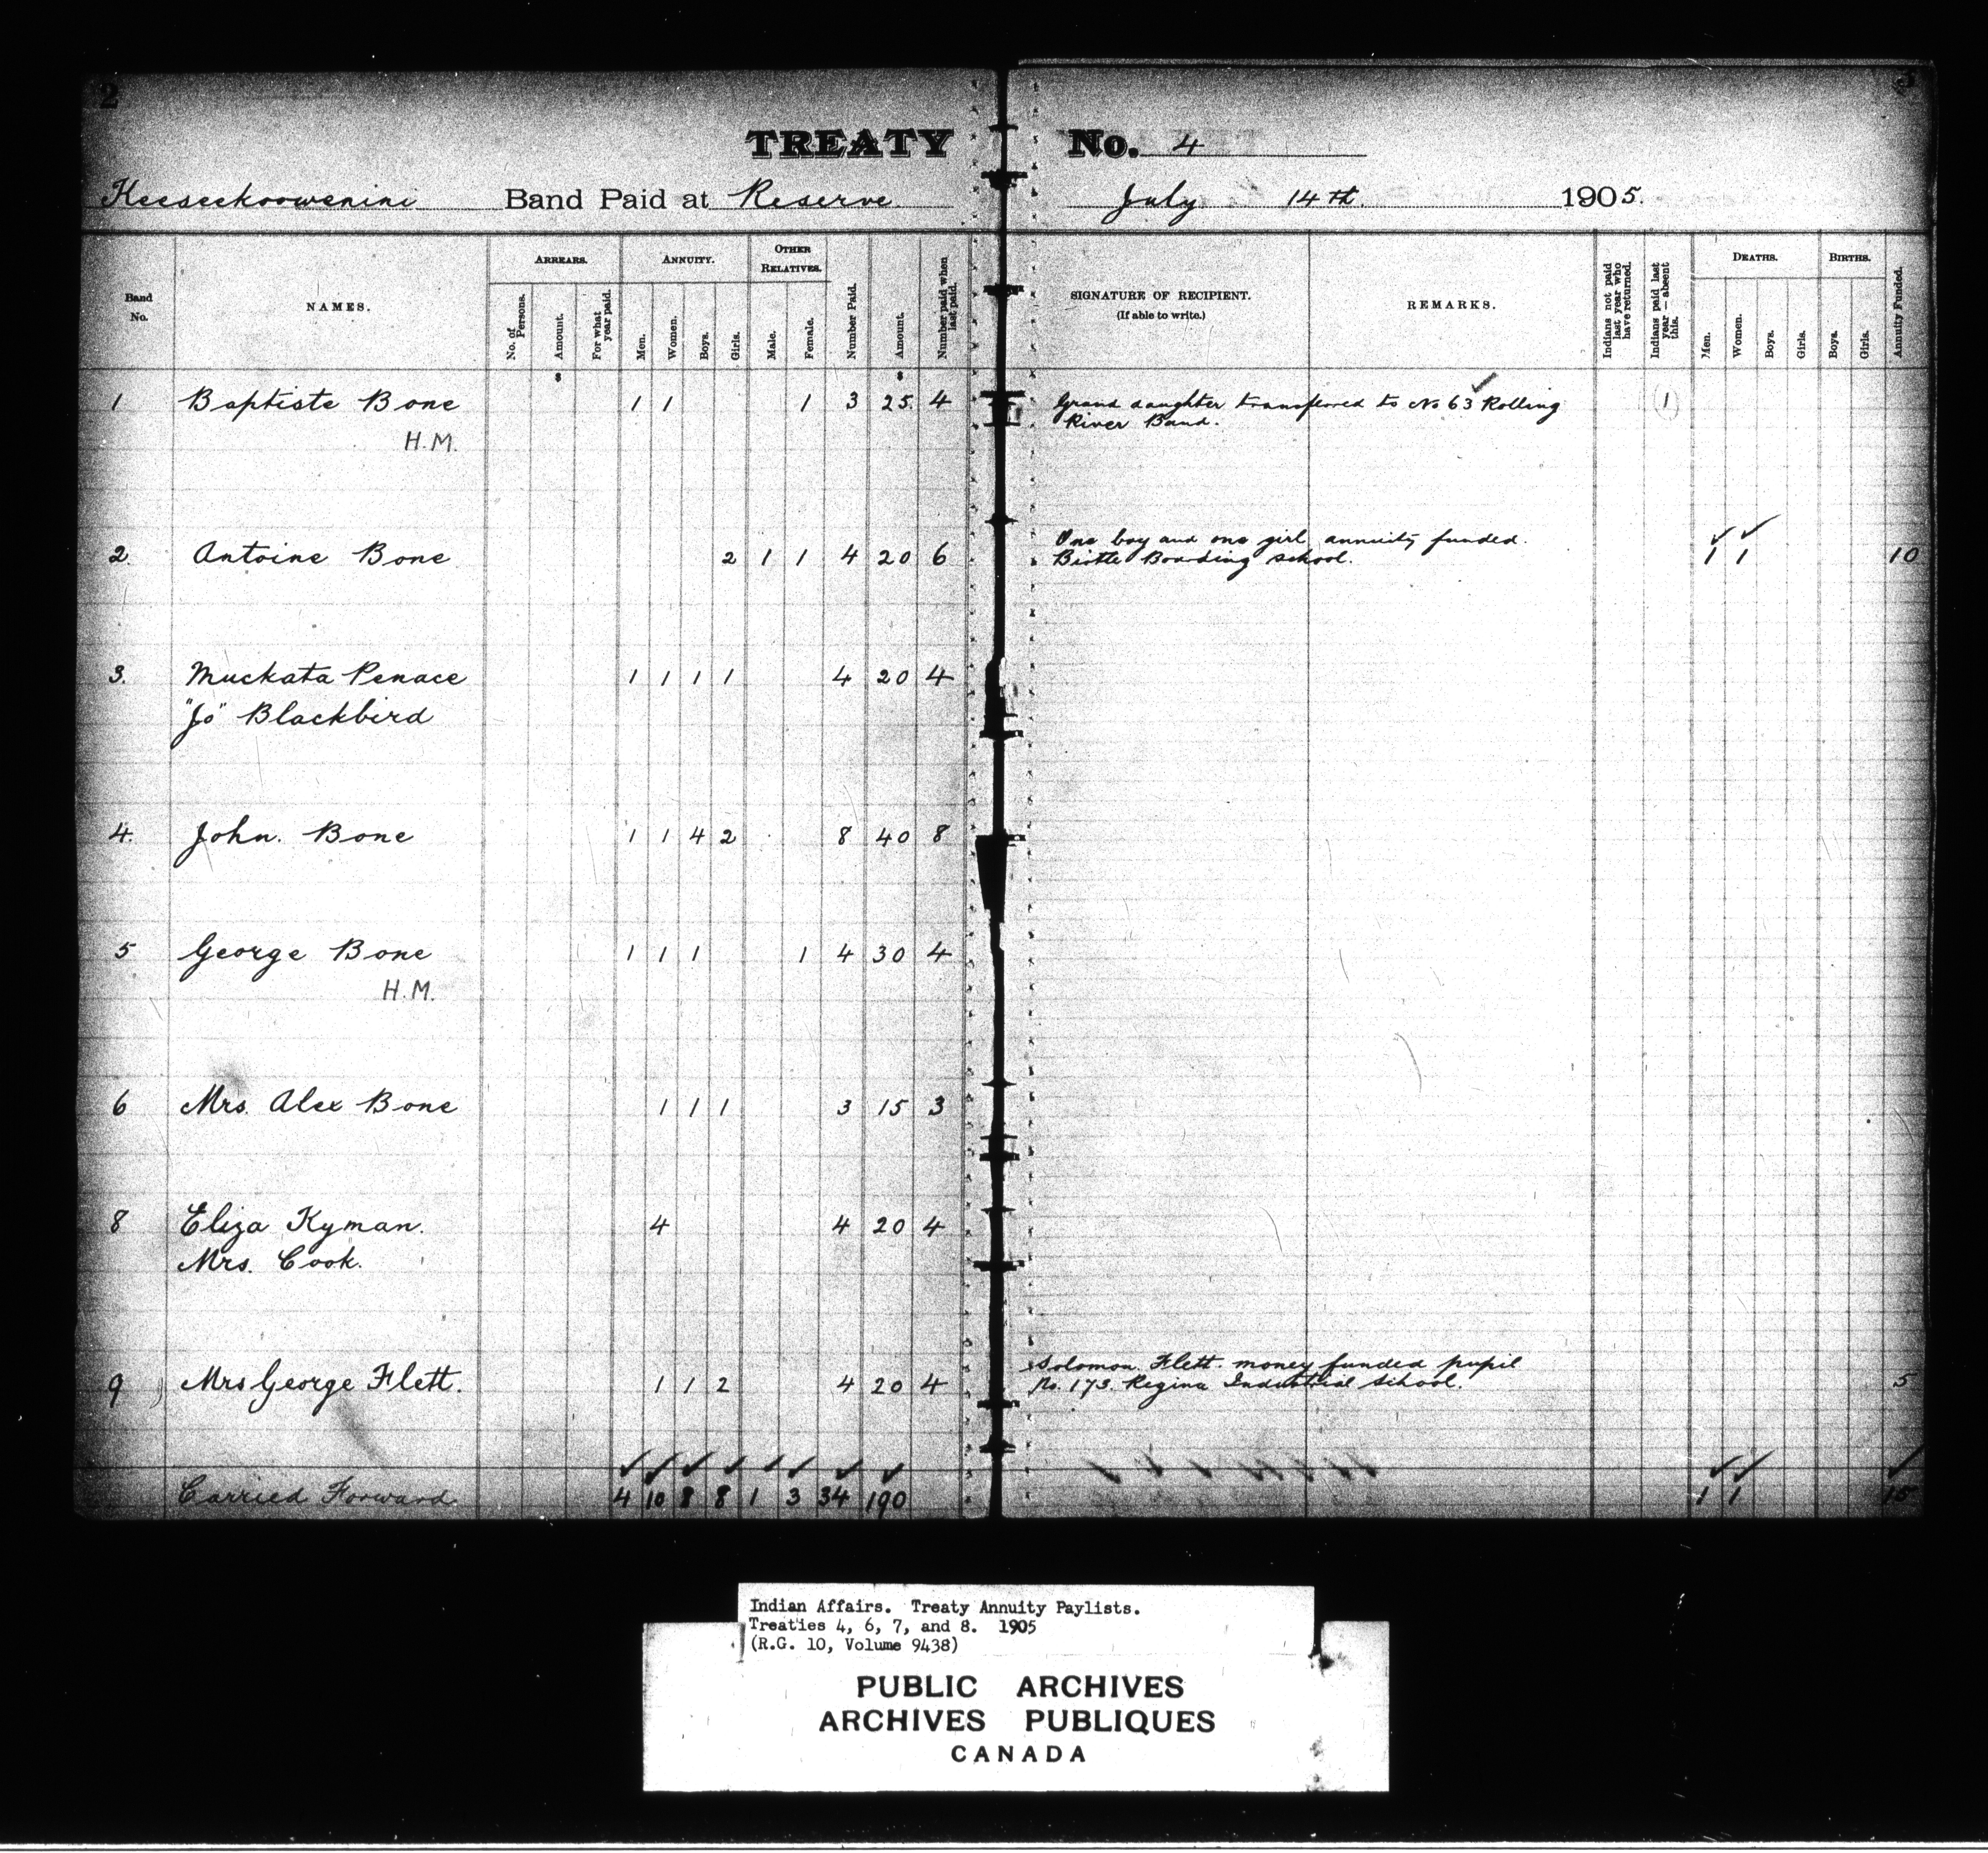 2
3
TREATY No. 4
Keeseekoowenini Band Paid at Reserve July 14th 1905.
Band No.
NAMES.
ARREARS.
No. of Persons.
Amount.
For what year paid.
ANNUITY.
Men.
Women.
Boys.
Girls.
OTHER RELATIVES.
Male.
Female.
Number Paid.
Amount.
Number paid when last paid.
SIGNATURE OF RECIPIENT.
(If able to write.)
REMARKS.
Indians not paid last year who have returned.
Indians paid last year—absent this.
DEATHS.
Men.
Women.
Boys.
Girls.
BIRTHS.
Boys.
Girls.
Annuity Funded.
$ $
1 Baptiste Bone 1 1 1 3 25. 4 Grand daughter transfered to No 63 Rolling 1
H.M. River Band.
One boy and one girl, annuity funded.
2. Antoine Bone 2 1 1 4 20 6 Birtle Boarding school. 1 1 10
3. Muckata Penace 1 1 1 1 4 20 4
"Jo" Blackbird
4. John. Bone 1 1 4 2 8 40 8
5 George Bone 1 1 1 1 4 30 4
H.M.
6 Mrs. Alex Bone 1 1 1 3 15 3
8 Eliza Kyman. 4 4 20 4
Mrs. Cook.
Solomon Flett. money funded pupil
9 Mrs George Flett. 1 1 2 4 20 4 No. 173. Regina Industrial School. 5
Carried Forward 4 10 8 8 1 3 34 190 1 1 15
Indian Affairs. Treaty Annuity Paylists.
Treaties 4, 6, 7, and 8. 1905
(R.G. 10, Volume 9438)
PUBLIC ARCHIVES
ARCHIVES PUBLIQUES
CANADA